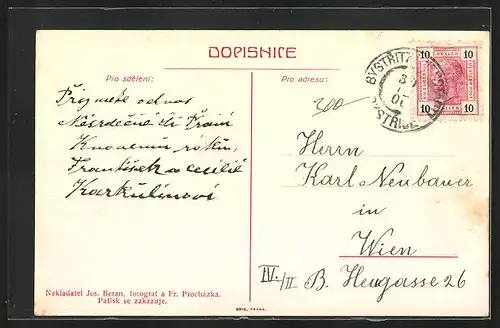 DOPISNICE
Pro sdělení:
Přijměte od nás
Násrdečnější Přání
Knovému roku,
František a Cecilie
Pro adresu:
BYSTŘITZ
BYSTŘICE
10 HELLER 10
10 10
Herrn
Karl Neubauer
in
Wien
IV./II B. Heugasse 26
Nakladatel Jos. Beran, fotograf a Fr. Procházka.
Patisk se zakazuje.
PRAHA.